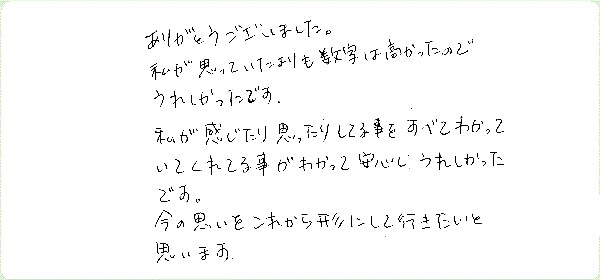 ありがとうございました。
私が思っていたよりも数字は高かったので
うれしかったです.
私が感じたり思ったりしてる事をすべてわかって
いてくれてる事がわかって安心し、うれしかった
です。
今の思いをこれから形にして行きたいと
思います.